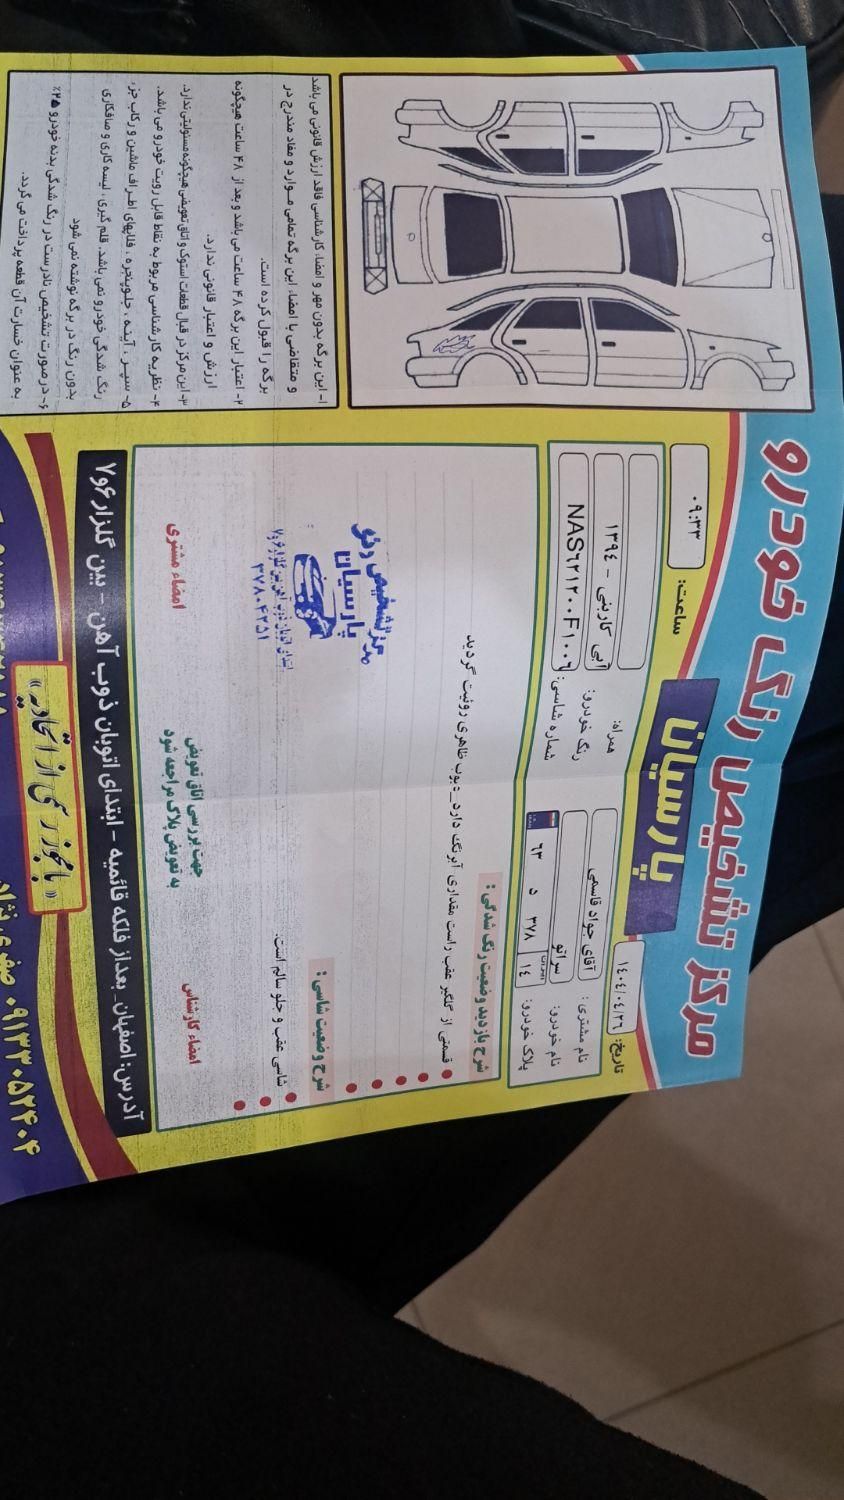 مرکز تشخیص رنگ خودرو
پارسیان
تاریخ: ۱۴۰۴/۰۴/۲۶
ساعت: ۰۹:۳۳
نام مشتری: آقای جواد قاسمی
نام خودرو: سراتو
پلاک خودرو: ۶۳ ۵ ۳۷۸ ایران ۱۴
همراه:
رنگ خودرو: آبی کاربنی - ۱۳۹۴
شماره شاسی: NAS۶۲۱۲۰۰F۱۰۰۶
شرح بازدید وضعیت رنگ شدگی:
قسمتی از گلگیر عقب راست مقداری آبرنگ دارد ظاهری روئیت گردید
شرح وضعیت شاسی:
شاسی عقب و جلو سالم است.
مرکز تشخیص رنگ
پارسیان
۳۷۸۰۴۲۵۱
امضاء کارشناس
جهت بررسی اتاق تعویض
به تعویض پلاک مراجعه شود
امضاء مشتری
۱- این برگه بدون مهر و امضاء کارشناسی فاقد ارزش قانونی می باشد
و متقاضی با امضاء این برگه تمامی موارد و مفاد مندرج در
برگه را قبول کرده است.
۲- اعتبار این برگه ۴۸ ساعت می باشد و بعد از ۴۸ ساعت هیچگونه
ارزش و اعتبار قانونی ندارد.
۳- این مرکز در قبال قطعات استوک و اتاق تعویضی هیچگونه مسئولیتی ندارد.
۴- نظریه کارشناسی مربوط به نقاط قابل رویت خودرو می باشد.
۵- سپر، آینه، جلوپنجره، قلابهای اطراف ماشین و رکاب جزء
رنگ شدگی خودرو نمی باشد. قلم گیری، لیسه کاری و صافکاری
بدون رنگ در برگه نوشته نمی شود
۶- در صورت تشخیص نادرست در رنگ شدگی بدنه خودرو ۲۵٪
به عنوان خسارت آن قطعه پرداخت می گردد.
آدرس: اصفهان_ بعد از فلکه قائمیه - ابتدای اتوبان ذوب آهن - بین گلزار ۶و۷
«با مجوز رسمی از اتحادیه»
۰۹۱۳۳۰۵۲۴۰۴